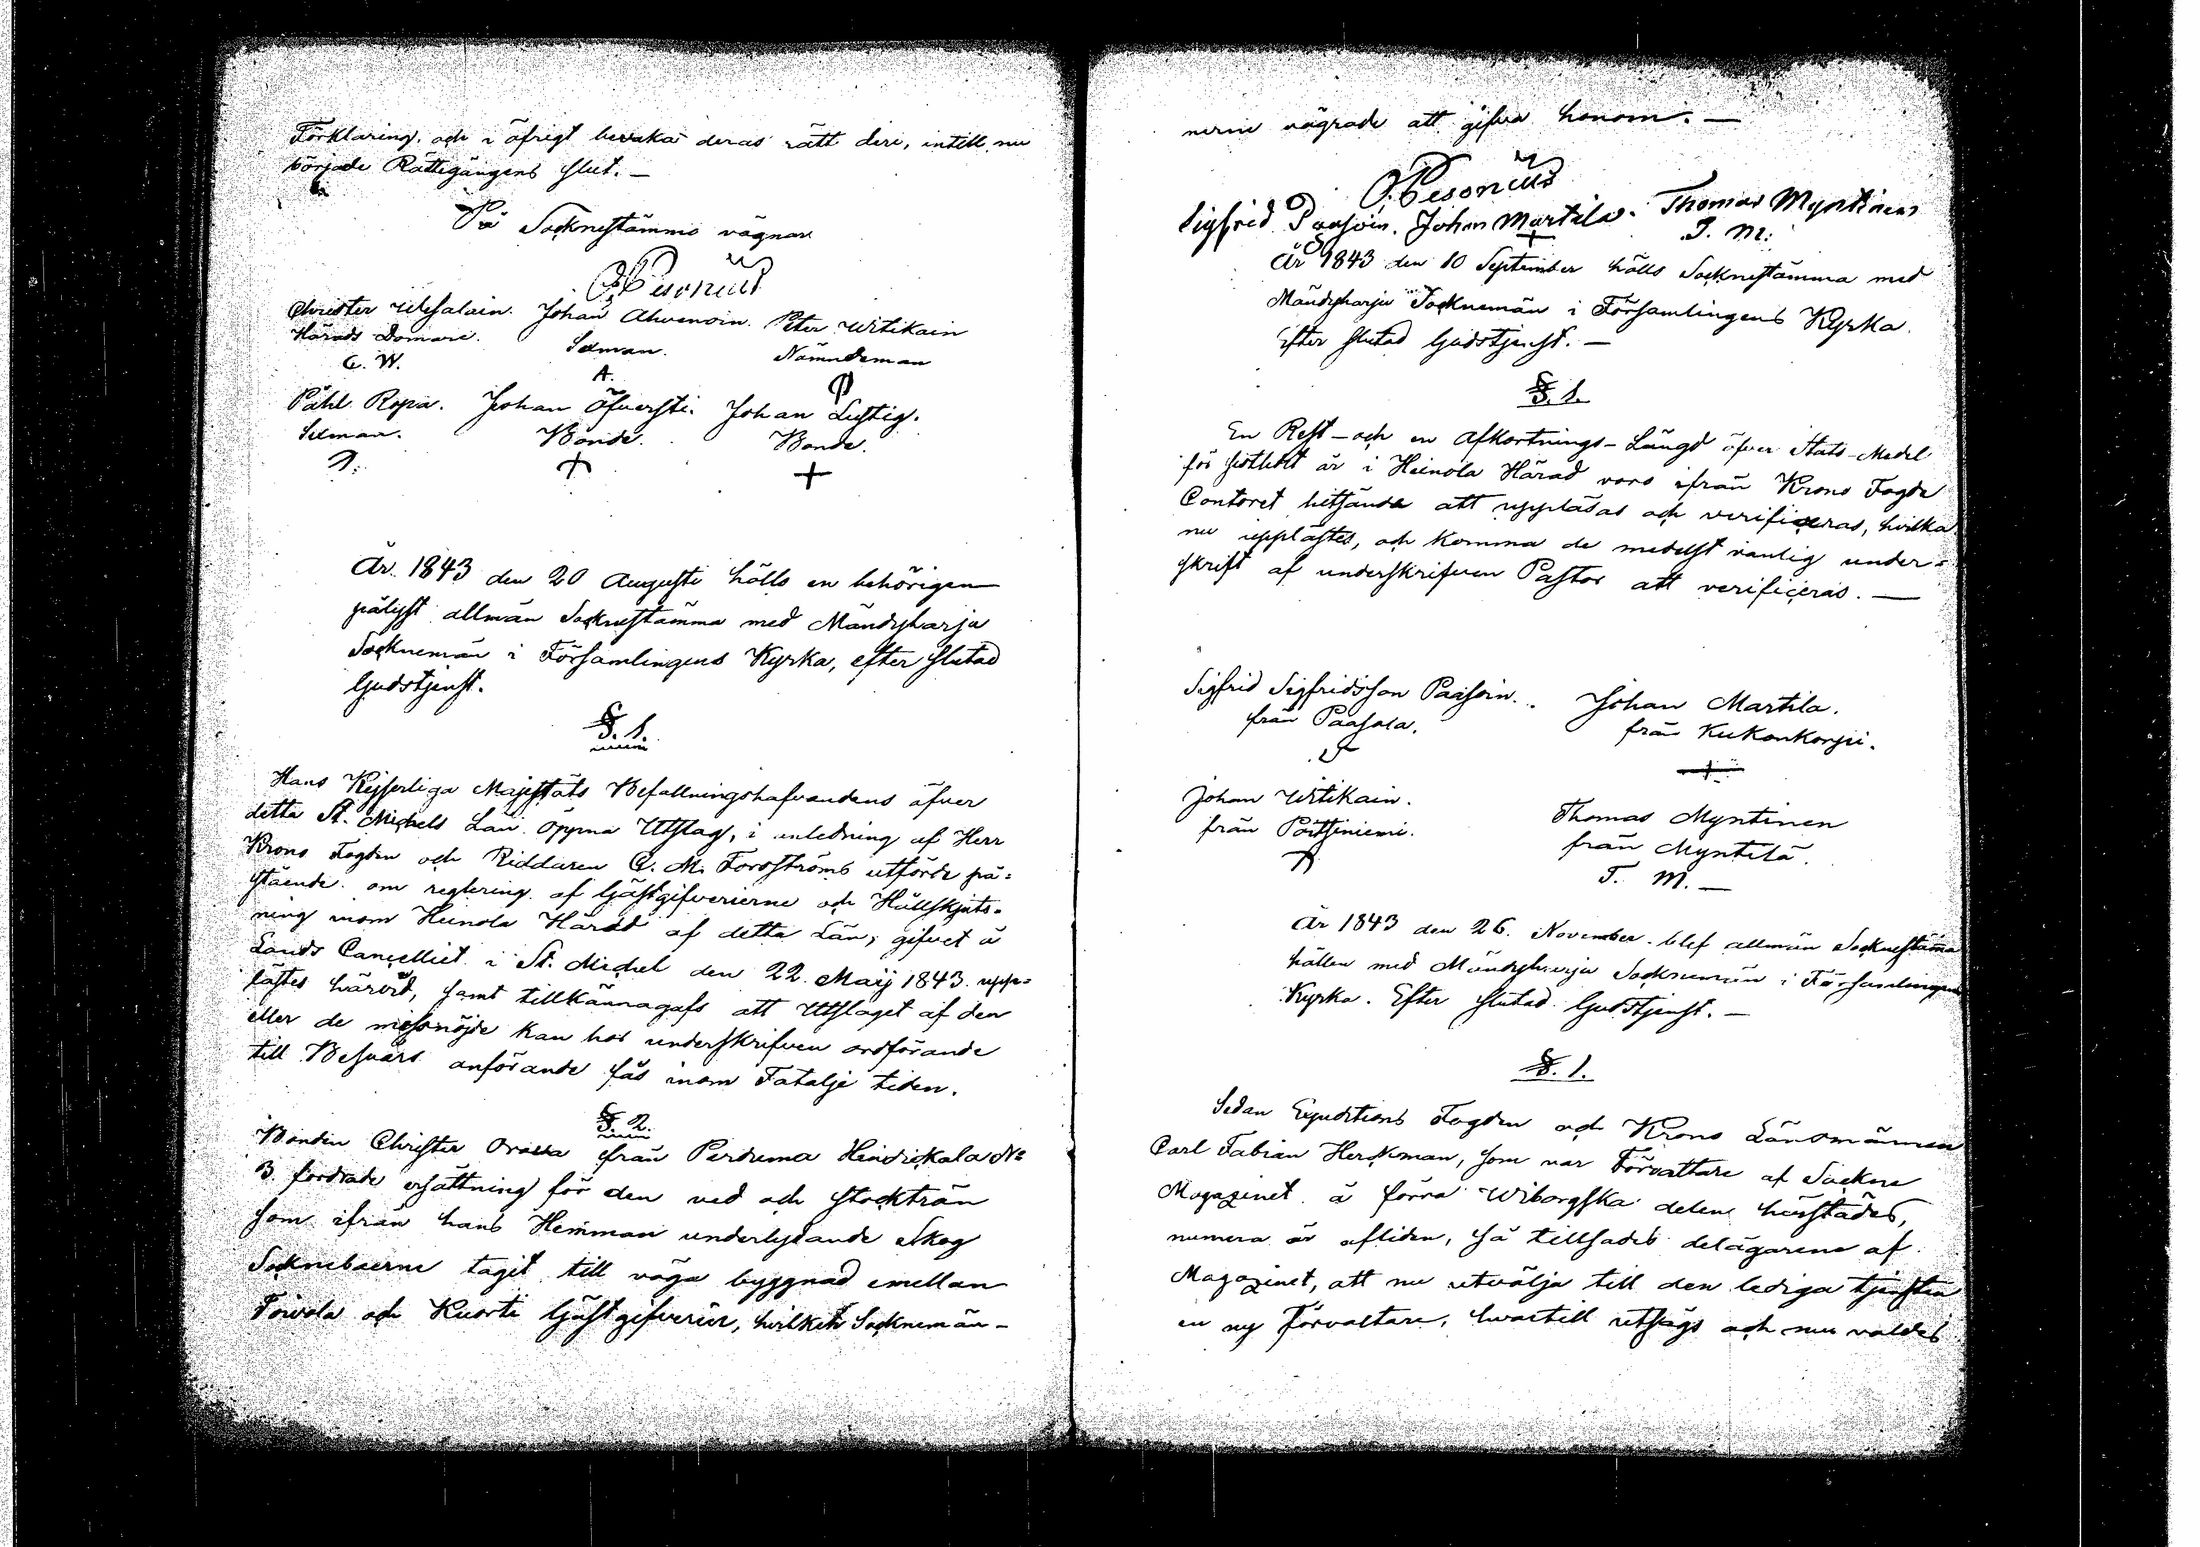 Förklaring, och i öfrigt bevaka deras rätt deri, intill nu
började Rättegångens slut. —
På Socknestämmo vägnar
O. Pesonius
Christer Wesalain. Johan Ahvenoin. Peter Witikain
Härads Domare. Sexman. Nämndeman
C. W. A.
Påhl Ropa. Johan Öfversti. Johan Lustig.
Sexman. Bonde. Bonde.
År 1843 den 20 Augusti hölls en behörigen
pålyst allmän Socknestämma med Mändyharju
Socknemän i Församlingens Kyrka, efter slutad
Gudstjenst.
§. 1.
Hans Kejserliga Majestäts Befallningshafvandens öfver
detta St. Michels Län öppna Utslag, i anledning af Herr
Krono Fogden och Riddaren C. M. Forsströms utförde på=
stående om reglering af Gästgifverierne och Hållskjuts=
ning inom Heinola Härad af detta Län, gifvet å
Lands Cancelliet i St. Michel den 22 Maij 1843 upp=
lästes härvid, samt tillkännagafs att Utslaget af den
eller de missnöjde kan hos underskrifven ordförande
till Besvärs anförande fås inom Fatalje tiden.
§. 2.
Bonden Christer Orassa från Perduma Hindrickala No
3. fordrade ersättning för den ved och stockträn
som ifrån hans Hemman underlydande Skog
Sockneboerne tagit till väga byggnad emellan
Toivola och Kuorti Gästgifverier, hvilket Socknemän-
nerne vägrade att gifva honom. —
O. Pesonius
Sigfrid Paasoin. Johan Martila. Thomas Myntinen
T. M.
År 1843 den 10 September hölls Socknestämma med
Mändyharju Socknemän i Församlingens Kyrka.
Efter slutad Gudstjenst. —
§. 1.
En Rest- och en Afkortnings-Längd öfver Stats-Medel
för sistledit år i Heinola Härad voro ifrån Krono Fogde
Contoret hitsände att uppläsas och verificeras, hvilka
nu upplästes, och komma de medelst vanlig under=
skrift af underskrifven Pastor att verificeras. —
Sigfrid Sigfridsson Paasoin. Johan Martila.
från Paasola. från Kukonkorpi.
Johan Witikain. Thomas Myntinen
från Pörtsiniemi. från Myntilä.
T. M. —
År 1843 den 26. November blef allmän Socknestämma
hållen med Mändyharju Socknemän i Församlingens
Kyrka. Efter slutad Gudstjenst. —
§. 1.
Sedan Expeditions Fogden och Krono Länsmannen
Carl Fabian Herckman, som var Förvaltare af Sockne
Magazinet å förra Wiborgska delen härstädes,
numera är afliden, så tillsades delägarene af
Magazinet, att nu utvälja till den lediga tjensten
en ny Förvaltare, hvartill utsågs och nu valdes